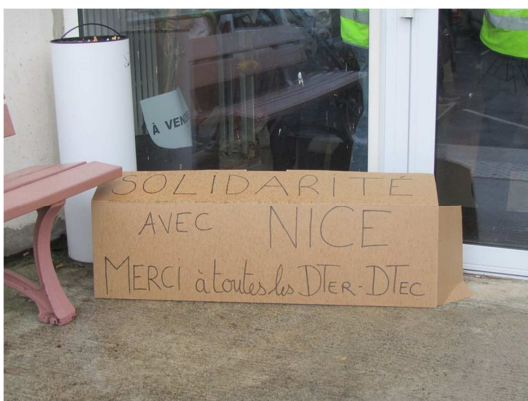 À VENDRE
SOLIDARITÉ
AVEC NICE
MERCI à toutes les DTER-DTEC